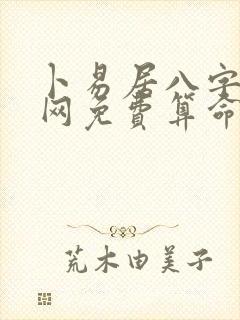 卜易居八字
网免費算命
荒木由美子